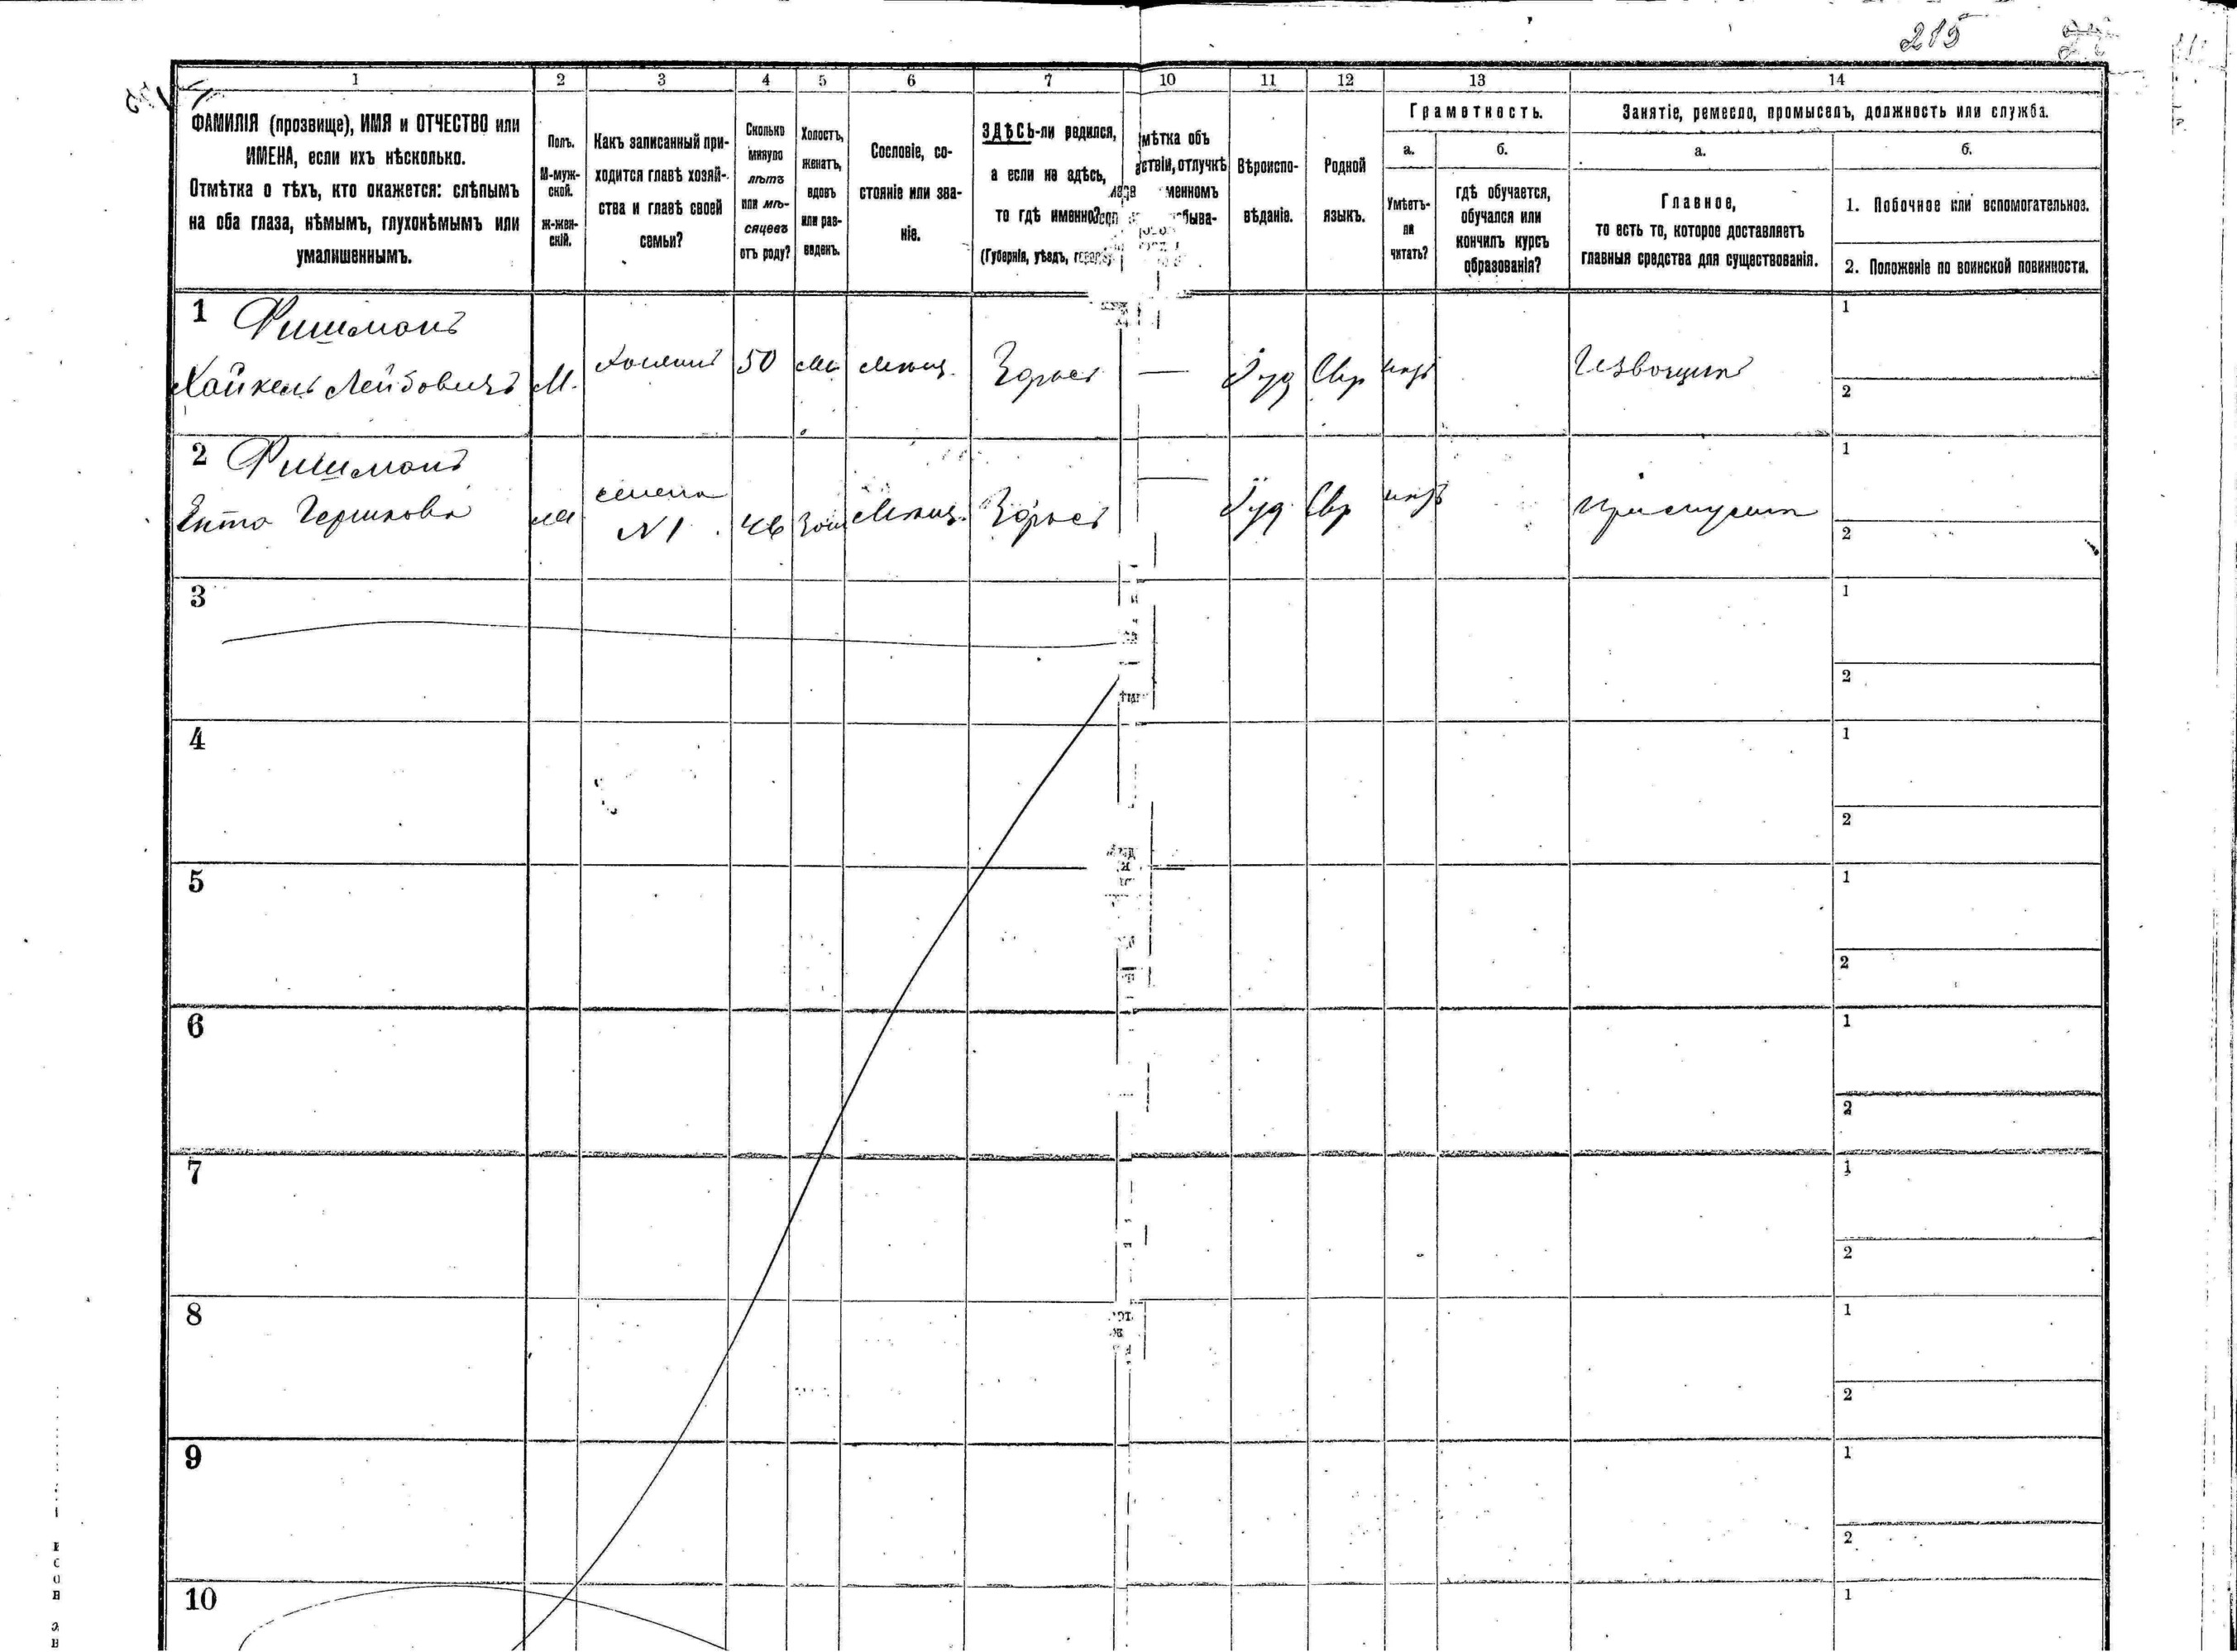 215
1
2
3
4
5
6
7
10
11
12
13
14
ФАМИЛІЯ (прозвище), ИМЯ и ОТЧЕСТВО или
ИМЕНА, если ихъ нѣсколько.
Отмѣтка о тѣхъ, кто окажется: слѣпымъ
на оба глаза, нѣмымъ, глухонѣмымъ или
умалишеннымъ.
Полъ.
М-муж-
ской.
Ж-жен-
скій.
Какъ записанный при-
ходится главѣ хозяй-
ства и главѣ своей
семьи?
Сколько
минуло
лѣтъ
или мѣ-
сяцевъ
отъ роду?
Холостъ,
женатъ,
вдовъ
или раз-
веденъ.
Сословіе, со-
стояніе или зва-
ніе.
ЗДѢСЬ-ли родился,
а если не здѣсь,
то гдѣ именно?
(Губернія, уѣздъ,
мѣтка объ
отлучкѣ
менномъ
быва-
Вѣроиспо-
вѣданіе.
Родной
языкъ.
Грамотность.
а.
Умѣетъ-
ли
читать?
б.
гдѣ обучается,
обучался или
кончилъ курсъ
образованія?
Занятіе, ремесло, промыселъ, должность или служба.
а.
Главное,
то есть то, которое доставляетъ
главныя средства для существованія.
б.
1. Побочное или вспомогательное.
2. Положеніе по воинской повинности.
1
Фишманъ
Хайкель Лейбовичъ
М.
хозяинъ
50
мѣщ.
—
Іуд
Евр
Извощикъ
1
2
2
Фишманъ
Ента Гершкова
N 1
46
мѣщ.
Іуд
Евр
1
2
3
1
2
4
1
2
5
1
2
6
1
2
7
1
2
8
1
2
9
1
2
10
1